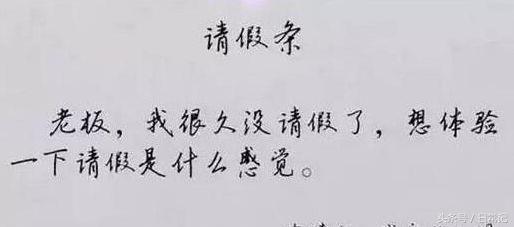 请假条
老板，我很久没请假了，想体验
一下请假是什么感觉。
头条号/日常记